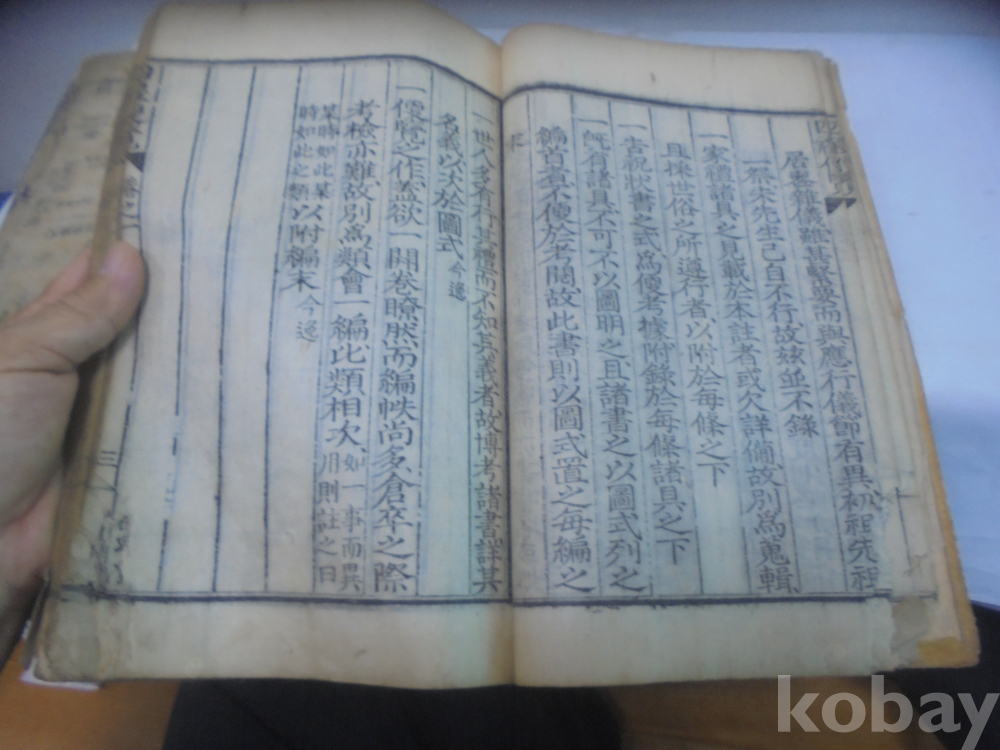 居喪雜儀雖甚緊要而與應行儀節有異初祖先祖
一祭朱先生已自不行故玆並不錄
一家禮諸具之見載於本註者或欠詳備故別爲蒐輯
且採世俗之所遵行者以附於每條之下
一告祝狀書之式爲便考據附錄於每條諸具之下
一旣有諸具不可不以圖明之且諸書之以圖式列之
編首者不便於考閱故此書則以圖式置之每編之
末
一世人多有行其禮而不知其義者故博考諸書詳其
名義以次於圖式今逸
一儂賢之作蓋欲一開卷瞭然而編帙尚多倉卒之際
考檢亦難故別爲類會一編比類相次如一事而異
用則註之曰
某時如此某
時如此之類以附編末今逸
三
kobay